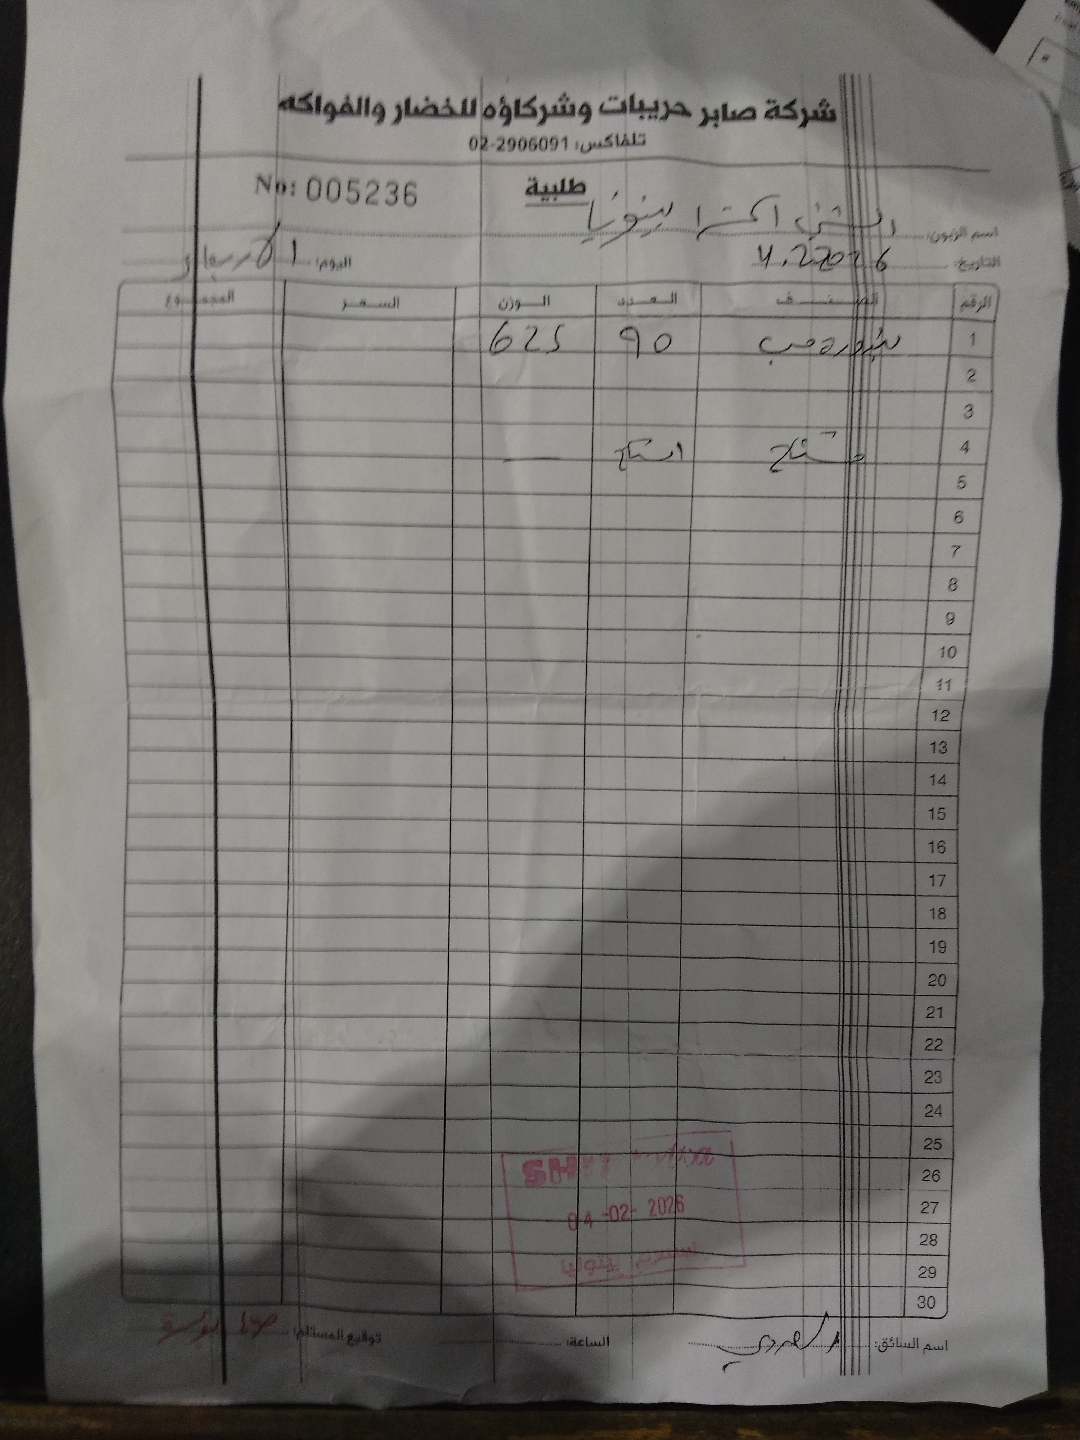 شركة صابر حريبات وشركاؤه للخضار والفواكه
تلفاكس: 02-2906091
No: 005236 طلبية
اسم الزبون: الشني اكسترا بيتونيا
التاريخ: 4.2.2026 اليوم: الاربعاء
الرقم الصنف العدد الوزن السعر المجموع
1 بندورة حب 90 625
2
3
4 استلام —
5
6
7
8
9
10
11
12
13
14
15
16
17
18
19
20
21
22
23
24
25
26
27
28
29
30
SH
04-02-2026
بيتونيا
اسم السائق: الساعة: توقيع المستلم: